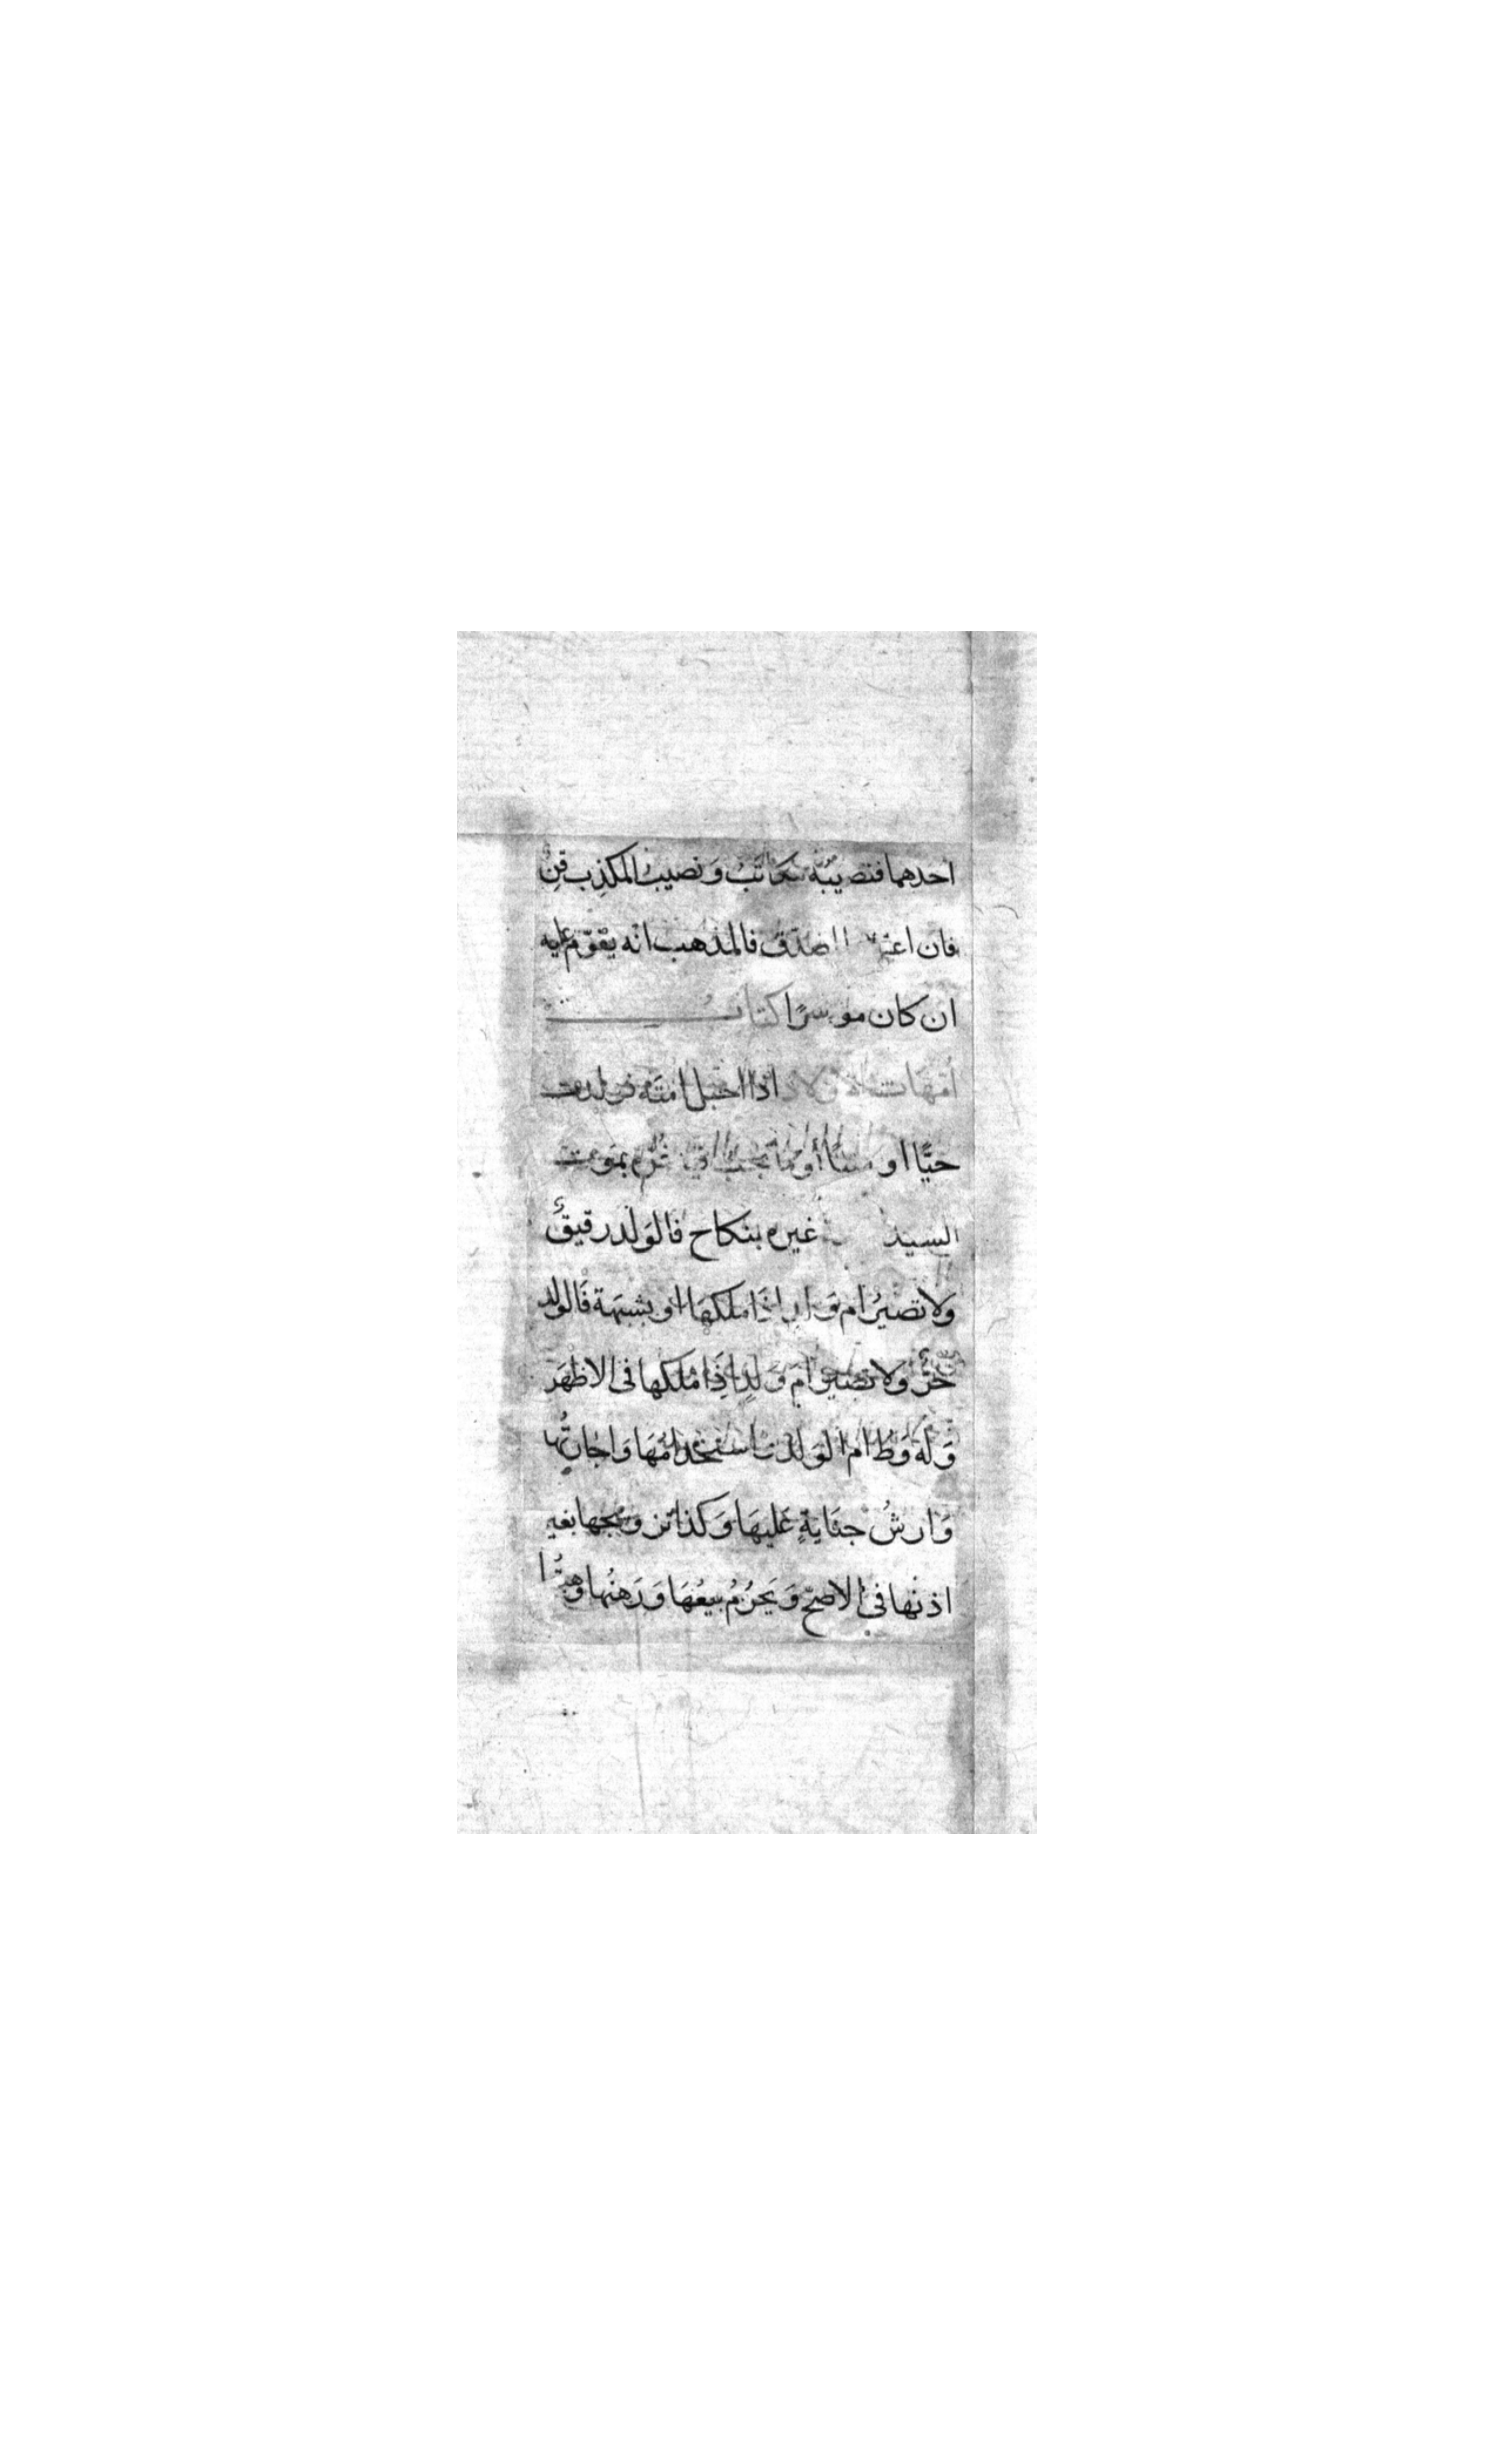 احدهما فنصيبُهُ مكاتَبٌ وَنصيبُ المكذِب قِنٌّ
فان اعتق المصدّق فالمذهب انه يقوّم عليه
ان كان موسرًا كتابُ
أمّهات الاولاد اذا احبل امتَه فولدت
حيًّا او ميتًا أو ما تجب فيه غرّة بموت
السيد غيره بنكاح فالوَلد رقيقٌ
ولا تصيرُ ام وَلد اذا ملكهَا او بشبهة فَالولد
حُرٌّ ولا تصير أم وَلدٍ إِذَا ملكها في الاظهَر
وَلَه وَطْءُ ام الوَلد واستخدامُهَا وَاجارتُها
وَارشُ جنَايةٍ عَليهَا وَكذا تزويجها بغير
اذنها في الاصحّ وَيَحرُمُ بيعُهَا وَرَهنُها وهبتُها